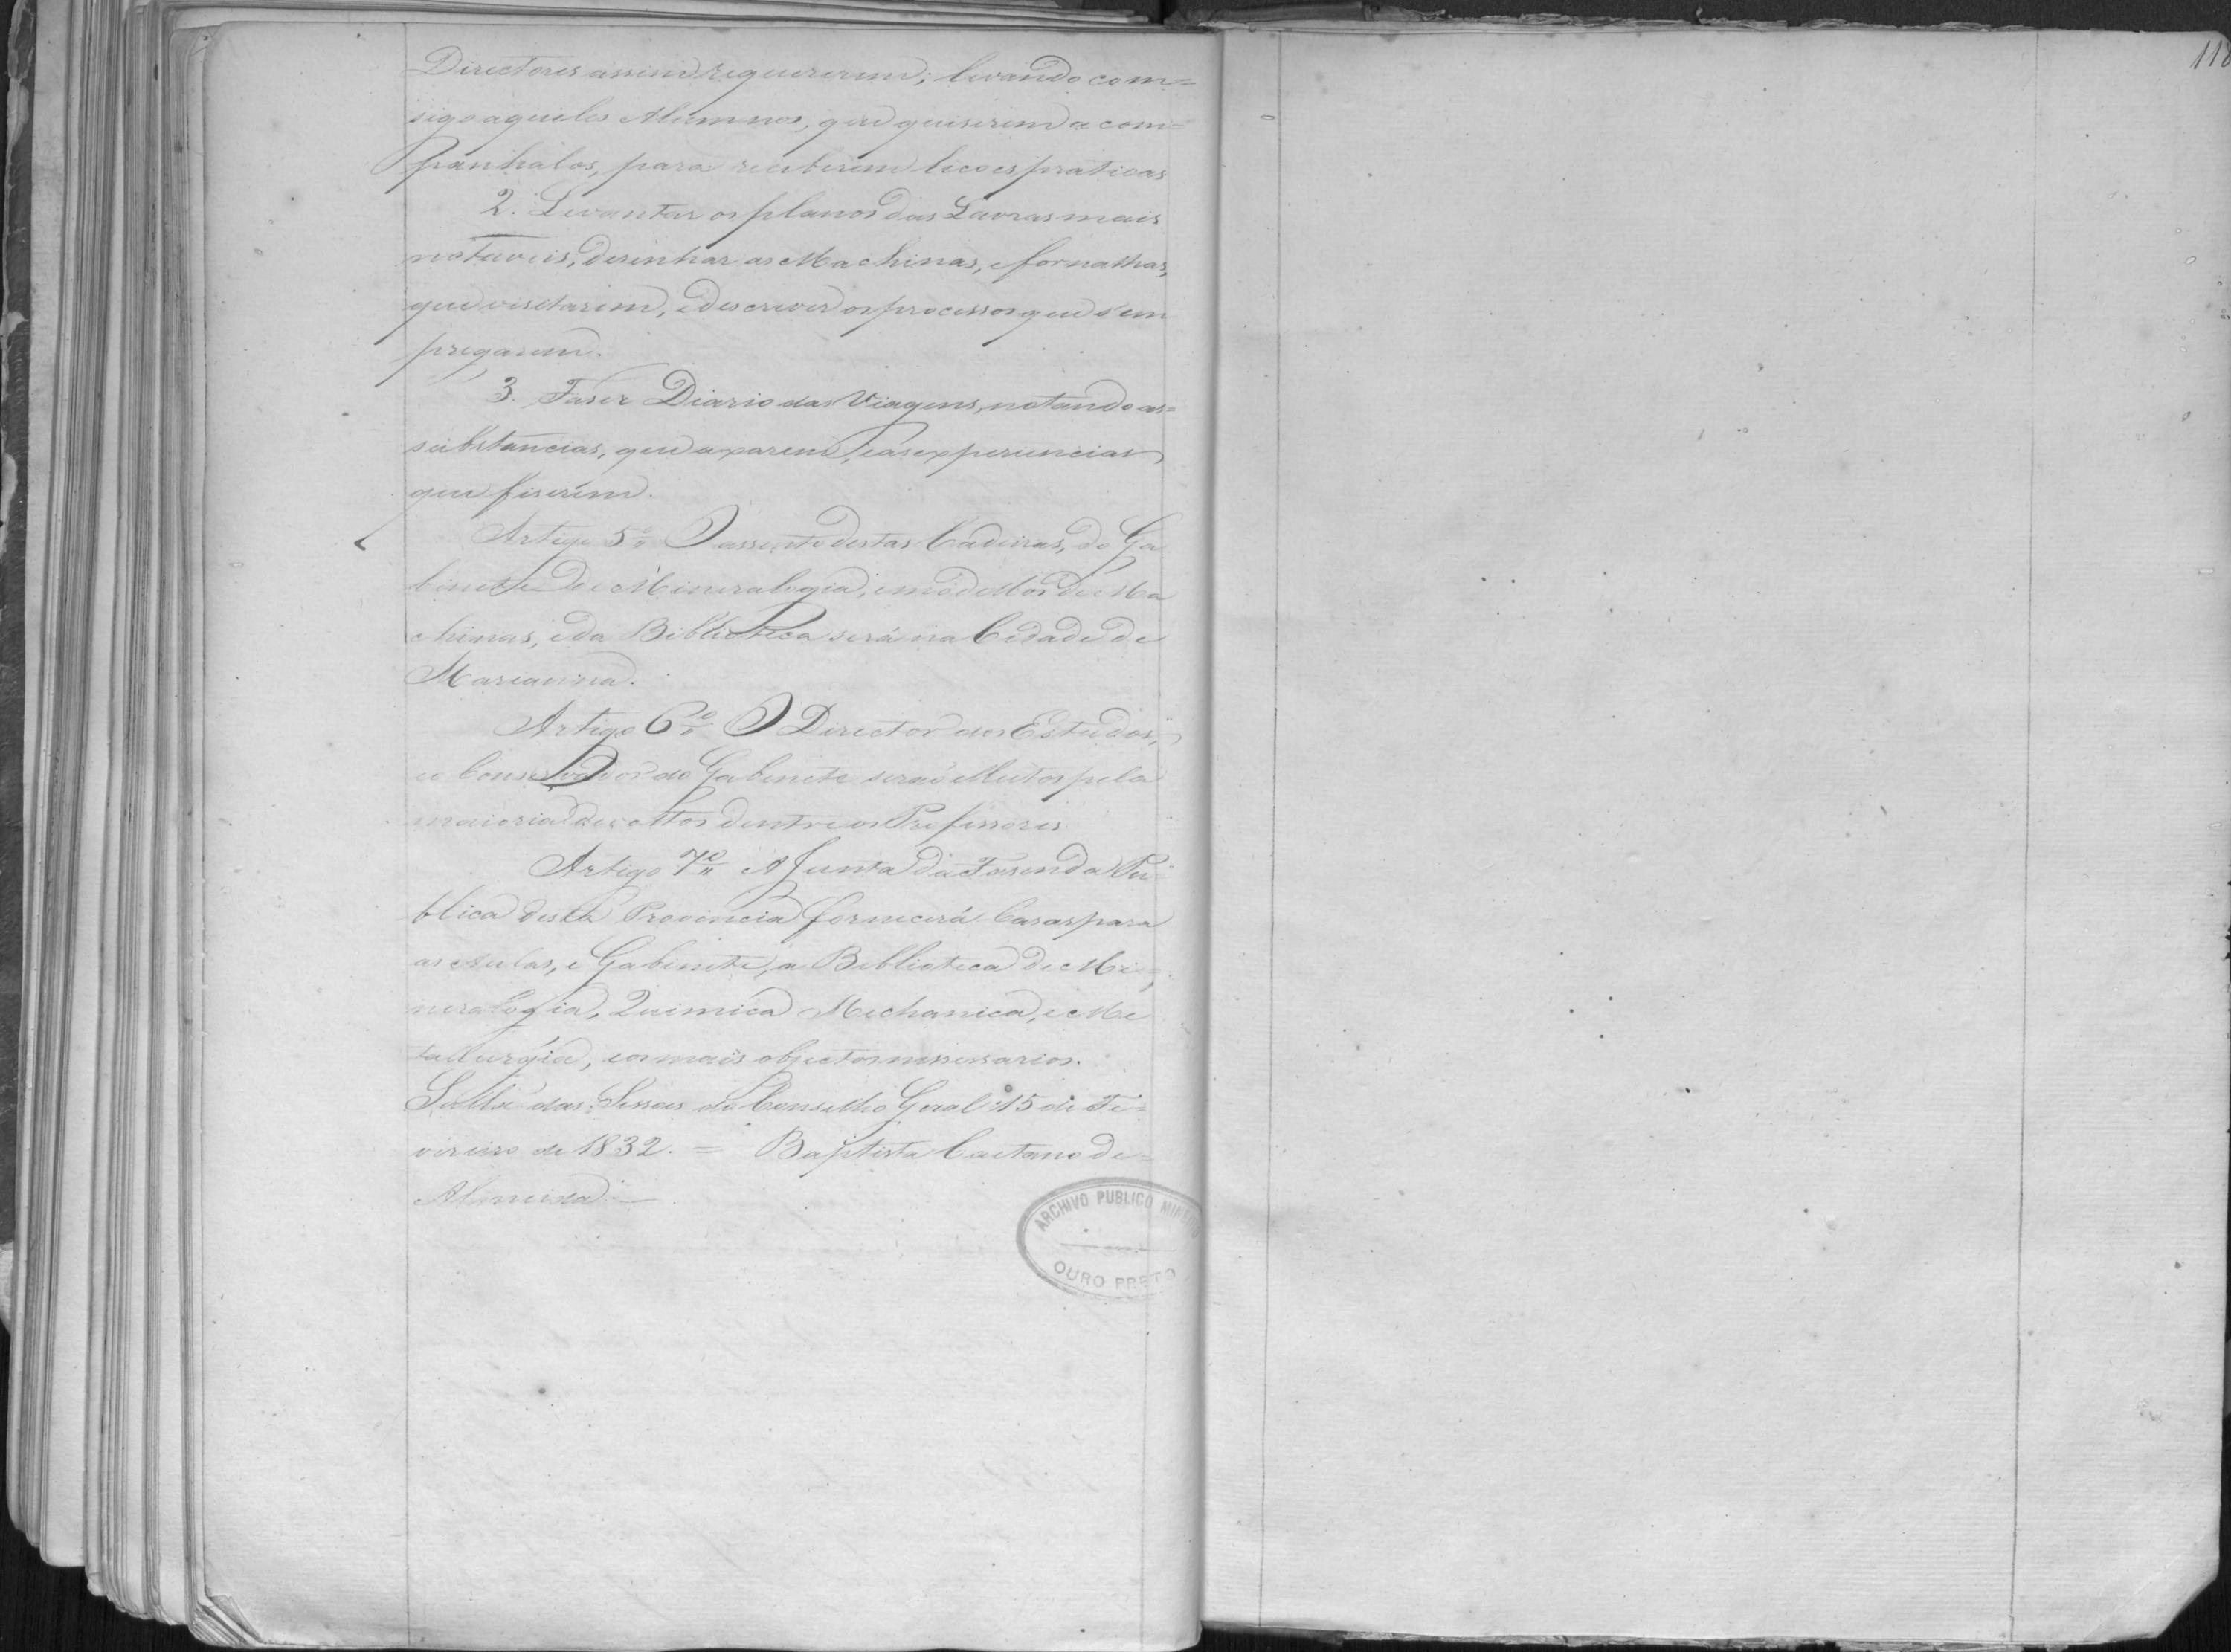 118
Directores assim requererem; levando com=
sigo aqueles Alumnos, que quiserem acom=
panhalos, para receberem licoes praticas
2. Levantar os planos das Lavras mais
notaveis, desenhar as Machinas, e fornalhas,
que visitarem, e descrever os processos que s'em
pregarem.
3. Faser Diario das Viagens, notando as=
substancias, que axarem, e as experiencias
que fiserem.
Artigo 5º O assento destas Cadeiras, do Ga
binete de Mineralogia, e modellos de Ma
chinas, e da Biblioteca será na Cidade de
Marianna.
Artigo 6º O Director dos Estudos,
e o Conservador do Gabinete serão elleitos pela
maioria de vottos dentre os Professores
Artigo 7º A Junta da Fasenda Pu
blica desta Provincia fornecerá Casas para
as Aulas, e Gabinete, a Biblioteca de Mi=
neralogia, Quimica Mechanica, e Me
tallurgia, e os mais objectos nessessarios.
Salla das Sessões do Conselho Geral 15 de Fe=
vereiro de 1832. = Baptista Caetano de=
Almeida
ARCHIVO PUBLICO MINEIRO
OURO PRETO